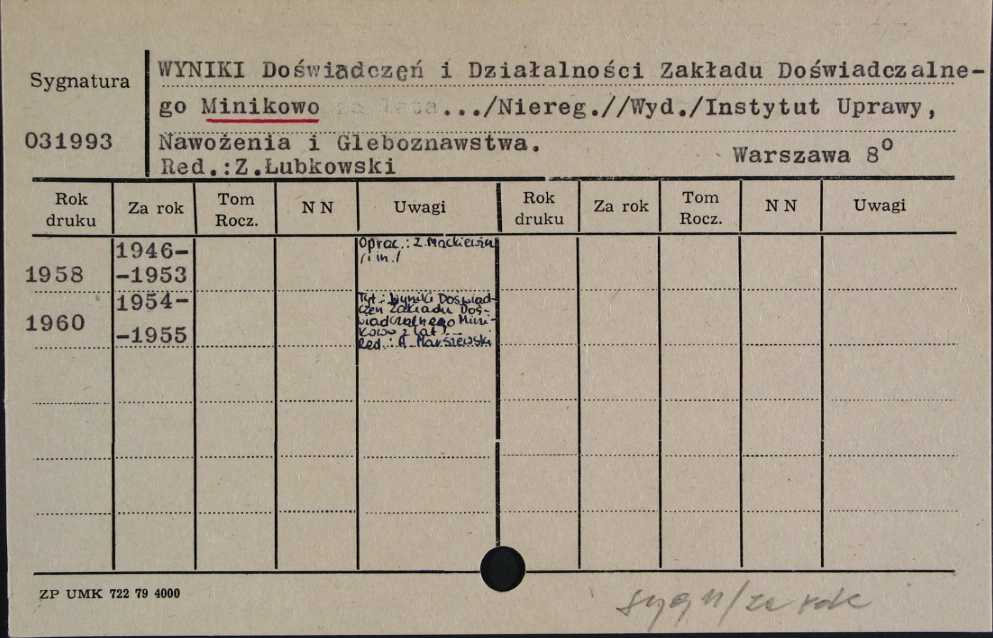 Sygnatura
031993
WYNIKI Doświadczęń i Działalności Zakładu Doświadczalne-
go Minikowo za lata.../Niereg.//Wyd./Instytut Uprawy,
Nawożenia i Gleboznawstwa.
Red.:Z.Łubkowski
Warszawa 8o
Rok druku Za rok Tom Rocz. N N Uwagi Rok druku Za rok Tom Rocz. N N Uwagi
1958 1946-
-1953
Oprac.: Z. Mackiewicz
/i in./
1960 1954-
-1955
Tyt.: Wyniki Doświad-
czeń Zakładu Doś-
wiadczalnego Mini-
kowo z lat
Red.: A. Marszewski
ZP UMK 722 79 4000
sygn/za rok